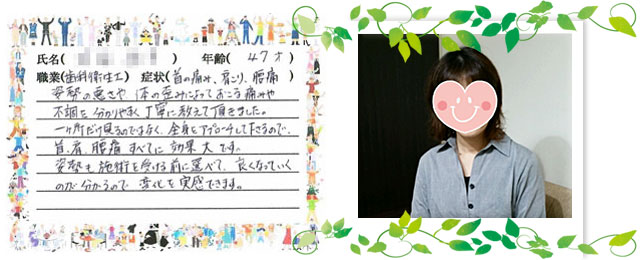 氏名(　　　　) 年齢( 47才 )
職業(歯科衛生士) 症状(首の痛み、肩こり、腰痛
姿勢の悪さや 体の歪みによっておこる痛みや
不調を分かりやすく丁寧に教えて頂きました。
一ヶ所だけ見るのではなく、全身をアプローチして下さるので、
首、肩、腰痛すべてに効果大です。
姿勢も施術を受ける前に比べて、良くなっていく
のが分かるので 変化を実感できます。